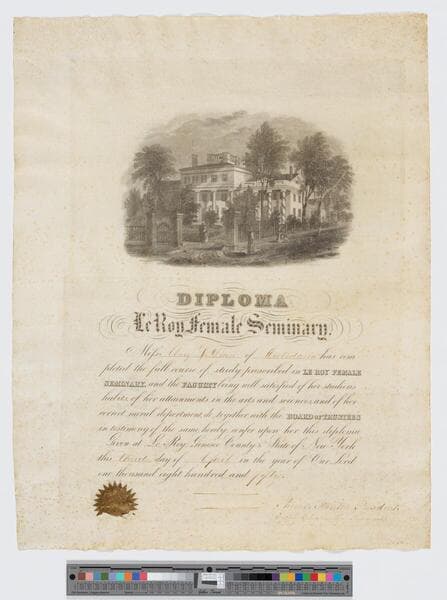 DIPLOMA
Le Roy Female Seminary.
Miss of Caledonia has com
pleted the full course of study prescribed in LE ROY FEMALE
SEMINARY, and the FACULTY being well satisfied of her studious
habits, of her attainments in the arts and sciences, and of her
correct moral deportment, do, together with the BOARD OF TRUSTEES
in testimony of the same, hereby confer upon her this diploma
Given at Le Roy, Genesee County & State of New York
this day of April in the year of Our Lord
one thousand eight hundred and fifty.